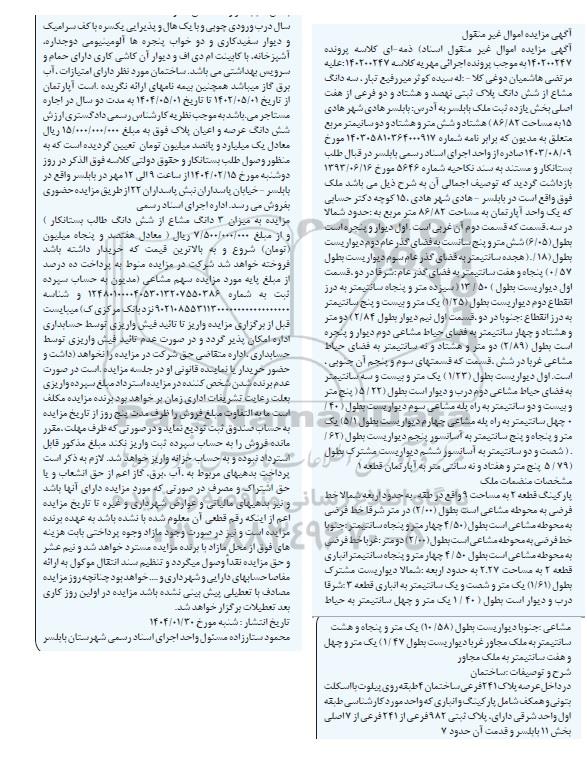 آگهی مزایده اموال غیر منقول
آگهی مزایده اموال غیر منقول اسناد) ذمه-ای کلاسه پرونده
۱۴۰۲۰۰۲۴۷به موجب پرونده اجرائی مهریه کلاسه ۱۴۰۲۰۰۲۴۷:علیه
مرتضی هاشمیان دوغی کلا - :له سیده کوثر میررفیع تبار، سه دانگ
مشاع از شش دانگ پلاک ثبتی نهصد و هشتاد و دو فرعی از هفت
اصلی بخش یازده ثبت ملک بابلسر به آدرس: بابلسر هادی شهر هادی
۱۵به مساحت ۸۶/۸۲ ) هشتاد و شش متر و هشتاد و دو سانتیمتر مربع
متعلق به مدیون که برابر نامه شماره ۱۴۰۳۰۵۸۱۰۳۶۴۰۰۰۹۱۷ مورخ
۱۴۰۳/۰۸/۰۹صادره از واحد اجرای اسناد رسمی بابلسر در قبال طلب
بستانکار و مستند به سند نکاحیه شماره ۵۶۴۶ مورخ ۱۳۹۳/۰۶/۱۶
بازداشت گردید که توصیف اجمالی آن به شرح ذیل می باشد ملک
فوق واقع است در بابلسر - هادی شهر هادی ،۱۵ کوچه دکتر حسابی
که یک واحد آپارتمان به مساحت ۸۶/۸۲ متر مربع به :حدود شمالا
در سه ،قسمت که قسمت دوم آن غربی است . اول دیوار و پنجره است
بطول (۶/۰۵) شش متر و پنج سانت به فضای گذر عام دوم دیواریست
بطول (۱۸/ ). هجده سانتیمتر به فضای گذر عام سوم دیواریست بطول
(۰/۵۷ پنجاه و هفت سانتیمتر به فضای گذر عام :شرقا در دو ،قسمت
اول دیواریست بطول ) ۵۰ / ۱۳ سیزده متر و پنجاه سانتیمتر به درز
انقطاع دوم دیواریست بطول (۱/۲۵) یک متر و بیست و پنج سانتیمتر
به درز انقطاع :جنوبا در دو ،قسمت اول نیم دیوار بطول ۲/۸۴) دو متر
و هشتاد و چهار سانتیمتر به فضای حیاط مشاعی دوم دیوار و پنجره
است بطول (۲/۸۹) دو متر و هشتاد و نه سانتیمتر به فضای حیاط
مشاعی غربا در شش ،قسمت که قسمتهای سوم و پنجم آن جنوبی،
است. اول دیواریست بطول (۱/۲۳ ) یک متر و بیست و سه سانتیمتر
به فضای حیاط مشاعی دوم درب و دیوار است بطول (۵/۲۲ پنج متر
و بیست و دو سانتیمتر به راه پله مشاعی سوم دیواریست بطول ( ۴۰ /
۰ چهل سانتیمتر به راه پله مشاعی چهارم دیواریست بطول ۱/۵۱) یک
متر و پنجاه و پنج سانتیمتر به آسانسور پنجم دیواریست بطول ( ۶۲ /
. ( شصت و دو سانتیمتر به آسانسور ششم دیواریست مشترک بطول
(۵ / ۷۹ پنج متر و هفتاد و نه سانتی متر به آپارتمان قطعه ۱
مشخصات منضمات ملک
پارکینگ قطعه ۲ به مساحت ۹ واقع در طبقه، به حدود اربعه شمالا خط
فرضی به محوطه مشاعی است بطول (۲/۰۰) در متر شرقا خط فرضی
به محوطه مشاعی است بطول (۴/۵۰ چهار متر و پنجاه سانتیمتر :جنوبا
خط فرضی به محوطه مشاعی است بطول (۲/۰۰) دو متر :غربا خط فرضی
به محوطه مشاعی است بطول ۵۰ /۴ چهار متر و پنجاه سانتیمتر انباری
قطعه ۲ به مساحت ۲.۲۷ به حدود اربعه :شمالا دیواریست مشترک
بطول (۱/۶۱) یک متر و شصت و یک سانتیمتر به انباری قطعه ۳ :شرقا
درب و دیوار است بطول ( ۴۰ / ۱ یک متر و چهل سانتیمتر به حیاط
مشاعی :جنوبا دیواریست بطول (۱/۵۸) یک متر و پنجاه و هشت
سانتیمتر به ملک مجاور غربا دیواریست بطول ۱/۴۷ ) یک متر و چهل
و هفت سانتیمتر به ملک مجاور
شرح و توصیفات :ساختمان
در داخل عرصه پلاک ۲۴۱فرعی ساختمان ۴طبقه روی پیلوت با اسکلت
بتونی و همکف شامل پارکینگ و انباری که واحد مورد کارشناسی طبقه
اول واحد شرقی دارای، پلاک ثبتی ۹۸۲فرعی از ۲۴۱ فرعی از ۷اصلی
بخش ۱۱ بابلسر و قدمت آن حدود ۷
سال درب ورودی چوبی و با یک هال و پذیرایی یکسره با کف سرامیک
و دیوار سفیدکاری و دو خواب پنجره ها آلومینیومی دوجداره،
آشپزخانه، با کابینت ام دی اف و دیوار آن کاشی کاری دارای حمام و
سرویس بهداشتی می باشد. ساختمان مورد نظر دارای امتیازات، آب
برق گاز میباشد همچنین بیمه نامهای ارائه نگریده .است آپارتمان
از تاریخ ۱۴۰۲/۰۵/۰۱ تا تاریخ ۱۴۰۴/۰۵/۰۱ به مدت دو سال در اجاره
مستاجر می،باشد به موجب نظریه کارشناس رسمی دادگستری ارزش
شش دانگ عرصه و اعیان پلاک فوق به مبلغ ۱۵/۰۰۰/۰۰۰/۰۰۰ ریال
معادل یک میلیارد و پانصد میلیون تومان تعیین گردیده است که به
منظور وصول طلب بستانکار و حقوق دولتی کلاسه فوق الذکر در روز
دوشنبه مورخ ۱۴۰۴/۰۲/۱۵از ساعت ۹ الی ۱۲ مهر در بابلسر واقع در
بابلسر -خیابان پاسداران نبش پاسداران ۲۲از طریق مزایده حضوری
بفروش می رسد. اداره اجرای اسناد رسمی
مزایده به میزان ۳ دانگ مشاع از شش دانگ طالب بستانکار )
و از مبلغ ۷/۵۰۰/۰۰۰/۰۰۰ ریال ( معادل هفتصد و پنجاه میلیون
(تومان) شروع و به بالاترین قیمت که خریدار داشته باشد
فروخته خواهد شد شرکت در مزایده منوط به پرداخت ده درصد
از مبلغ پایه مورد مزایده سهم مشاعی (مدیون به حساب سپرده
ثبت به شماره و شناسه
نزد بانک مرکزی ک) میبایست
قبل از برگزاری مزایده واریز تا تائید فیش واریزی توسط حسابداری
اداره امکان پذیر گردد و در صورت عدم تائید فیش واریزی توسط
حسابداری ،اداره متقاضی حق شرکت در مزایده را نخواهد (داشت و
حضور خریدار یا نماینده قانونی او در جلسه مزایده .است در صورت
عدم برنده شدن شخص کننده در مزایده استرداد مبلغ سپرده واریزی
بعلت رعایت تشریفات اداری زمان بر خواهد بود برنده مزایده مکلف
است ما به التفاوت مبلغ فروش را ظرف مدت پنج روز از تاریخ مزایده
به حساب صندوق ثبت تودیع نماید و در صورتی که ظرف مهلت ،مقرر
مانده فروش را به حساب سپرده ثبت واریز نکند مبلغ مذکور قابل
استرداد نبوده و به حساب خزانه واریز خواهد شد. لازم به ذکر است
پرداخت بدهیهای مربوط به ،آب ،برق، گاز اعم از حق انشعاب و یا
حق اشتراک و مصرف در صورتی که مورد مزایده دارای آنها باشد
و نیز بدهیهای مالیاتی و عوارض شهرداری و غیره تا تاریخ مزایده
اعم از اینکه رقم قطعی آن معلوم شده با نشده باشد به عهده برنده
مزایده است و نیز در صورت وجود مازاد وجوه پرداختی بابت هزینه
های فوق از محل مازاد با برنده مزایده مسترد خواهد شد و نیم عشر
و حق مزایده نقداً وصول میگردد و تنظیم سند انتقال موکول به ارائه
مفاصا حسابهای دارایی و شهرداری و .... خواهد بود چنانچه روز مزایده
مصادف با تعطیلی پیش بینی نشده باشد مزایده در اولین روز کاری
بعد تعطیلات برگزار خواهد شد.
تاریخ انتشار : شنبه مورخ ۱۴۰۴/۰۱/۳۰
محمود ستارزاده مسئول واحد اجرای اسناد رسمی شهرستان بابلسر